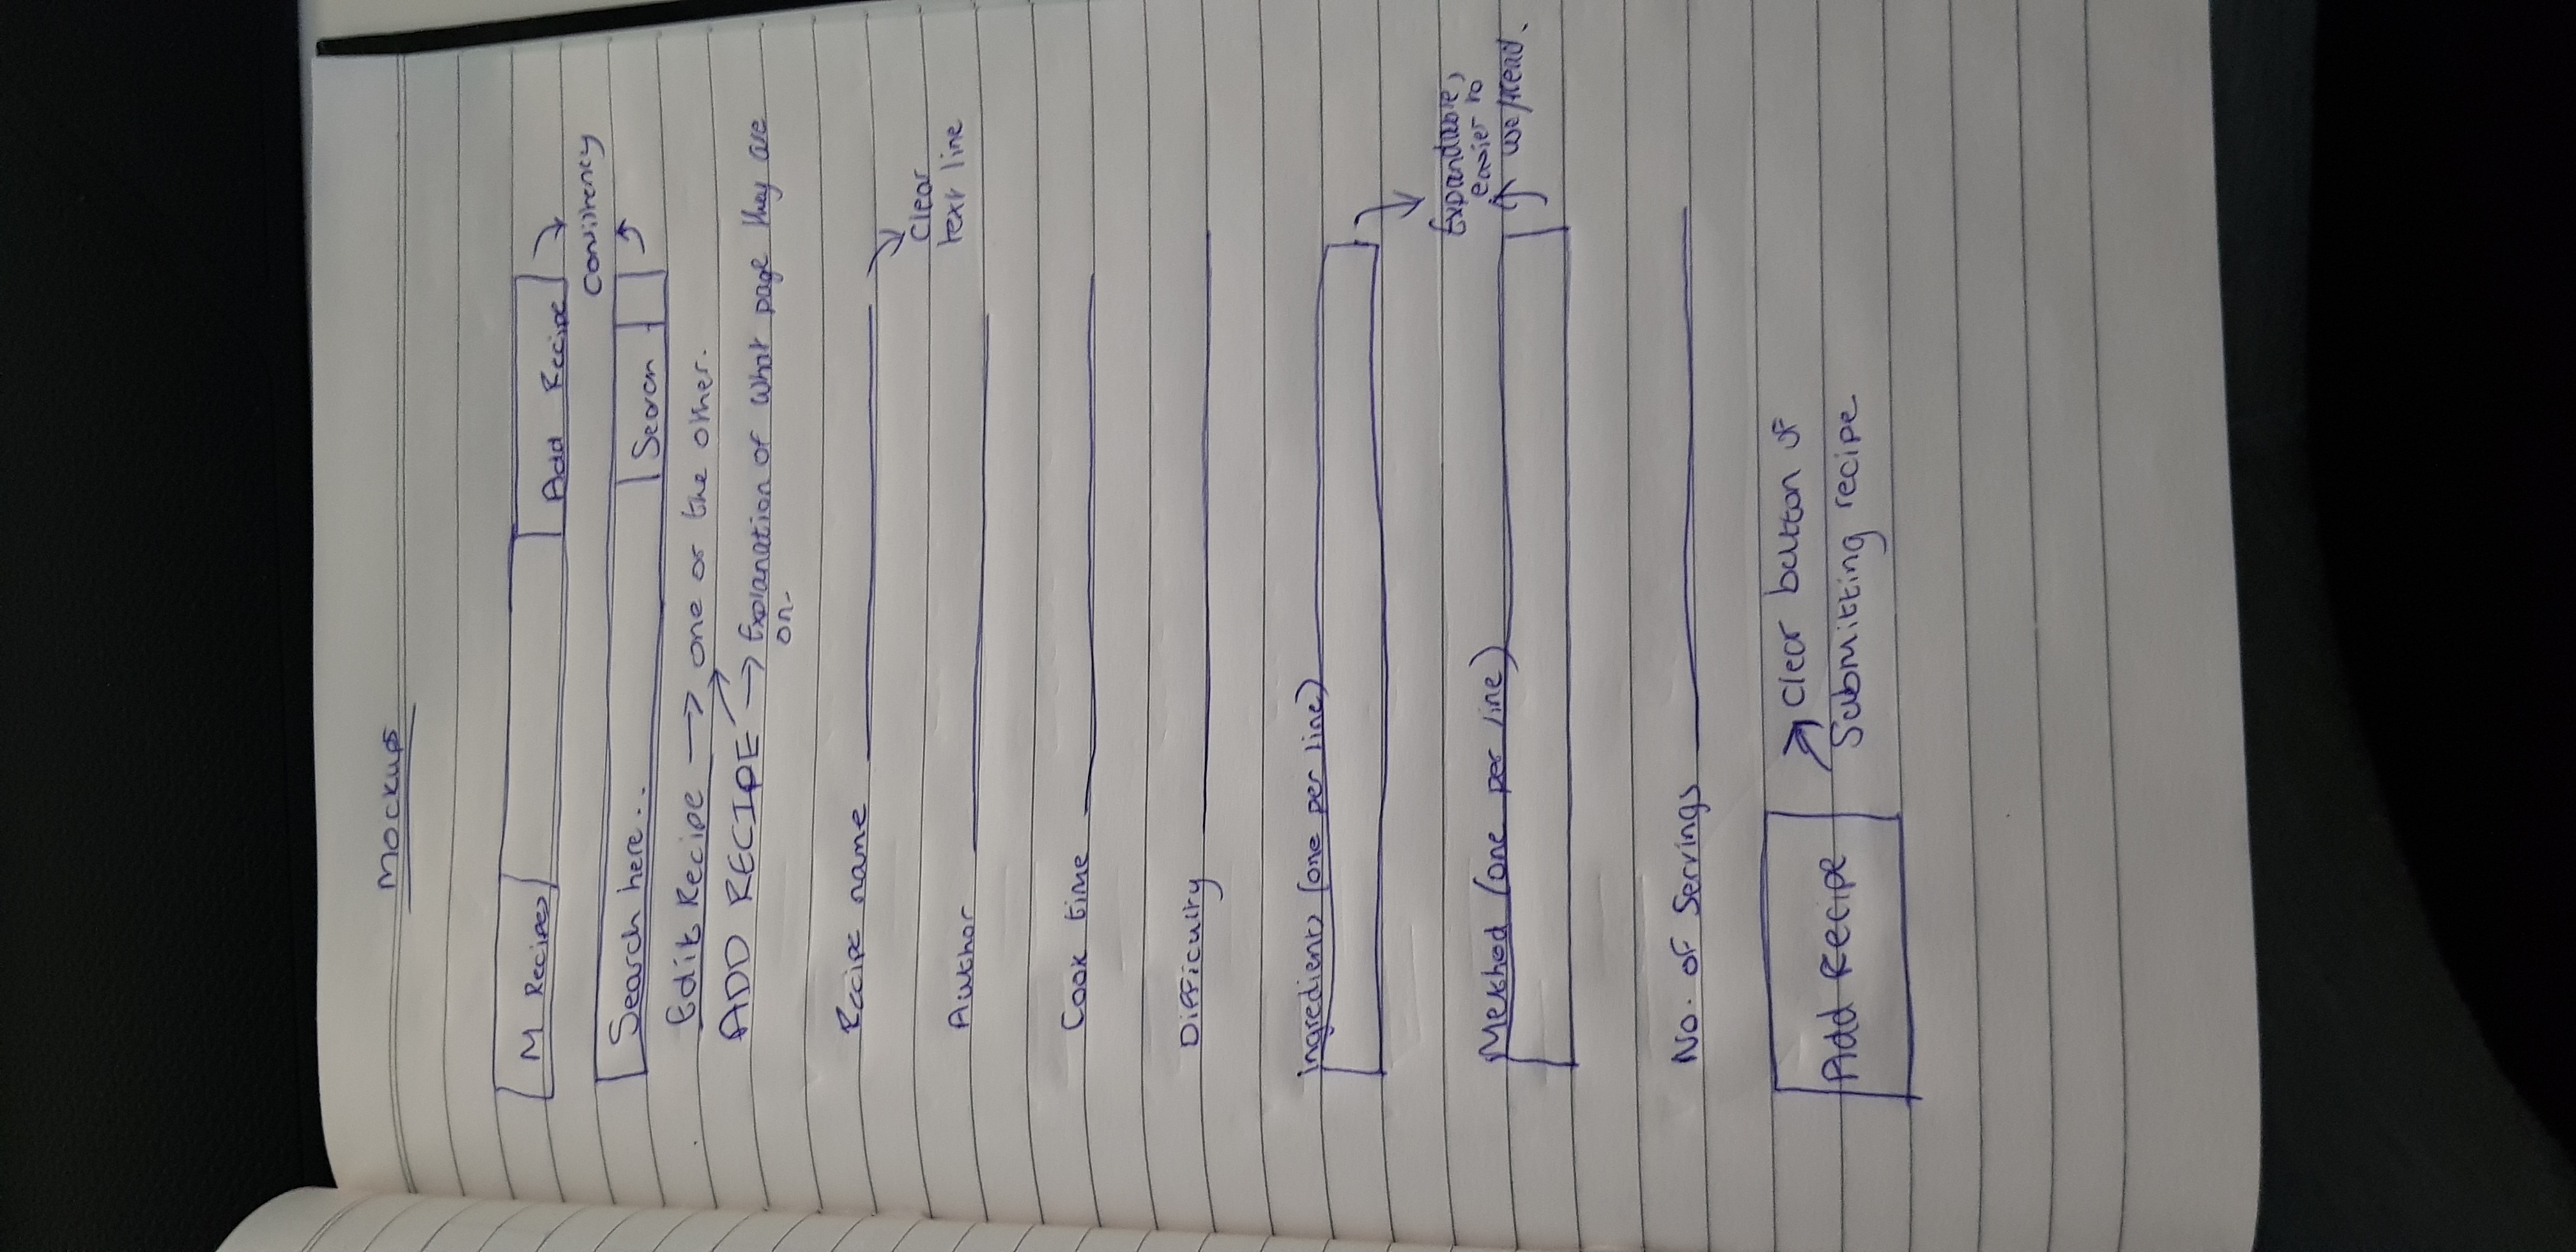 Mockups
M Recipes Add Recipe
Consistency
Search here.. Search
Edit Recipe → one or the other.
ADD RECIPE → Explanation of what page they are
on-
Recipe name
Clear
text line
Author
Cook time
Difficulty
Ingredients (one per line)
Expandable,
easier to
use/read.
Method (one per line)
No. of Servings
Add Recipe
clear button of
Submitting recipe